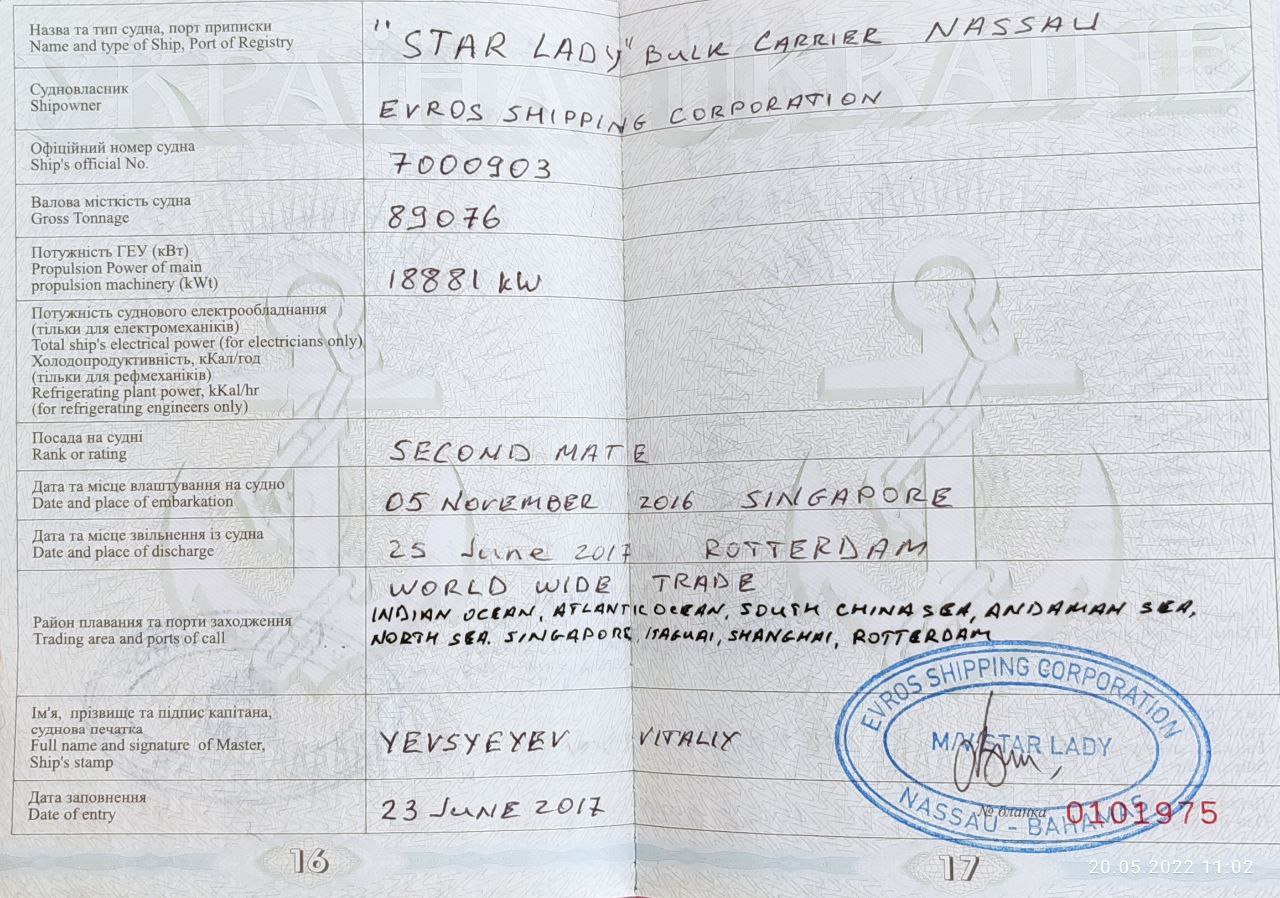 Назва та тип судна, порт приписки
Name and type of Ship, Port of Registry
"STAR LADY" BULK CARRIER NASSAU
Судновласник
Shipowner
EVROS SHIPPING CORPORATION
Офіційний номер судна
Ship's official No.
7000903
Валова місткість судна
Gross Tonnage
89076
Потужність ГЕУ (кВт)
Propulsion Power of main
propulsion machinery (kWt)
18881 kW
Потужність суднового електрообладнання
(тільки для електромеханіків)
Total ship's electrical power (for electricians only)
Холодопродуктивність, кКал/год
(тільки для рефмеханіків)
Refrigerating plant power, kKal/hr
(for refrigerating engineers only)
Посада на судні
Rank or rating
SECOND MATE
Дата та місце влаштування на судно
Date and place of embarkation
05 NOVEMBER 2016 SINGAPORE
Дата та місце звільнення із судна
Date and place of discharge
25 June 2017 ROTTERDAM
Район плавання та порти заходження
Trading area and ports of call
WORLD WIDE TRADE
INDIAN OCEAN, ATLANTIC OCEAN, SOUTH CHINA SEA, ANDAMAN SEA,
NORTH SEA. SINGAPORE, ITAGUAI, SHANGHAI, ROTTERDAM
Ім'я, прізвище та підпис капітана,
суднова печатка
Full name and signature of Master,
Ship's stamp
YEVSYEYEV VITALIY
EVROS SHIPPING CORPORATION
M/V STAR LADY
NASSAU - BAHAMAS
Дата заповнення
Date of entry
23 JUNE 2017
№ бланка 0101975
16
17
20.05.2022 11:02
УКРАЇНА UKRAINE